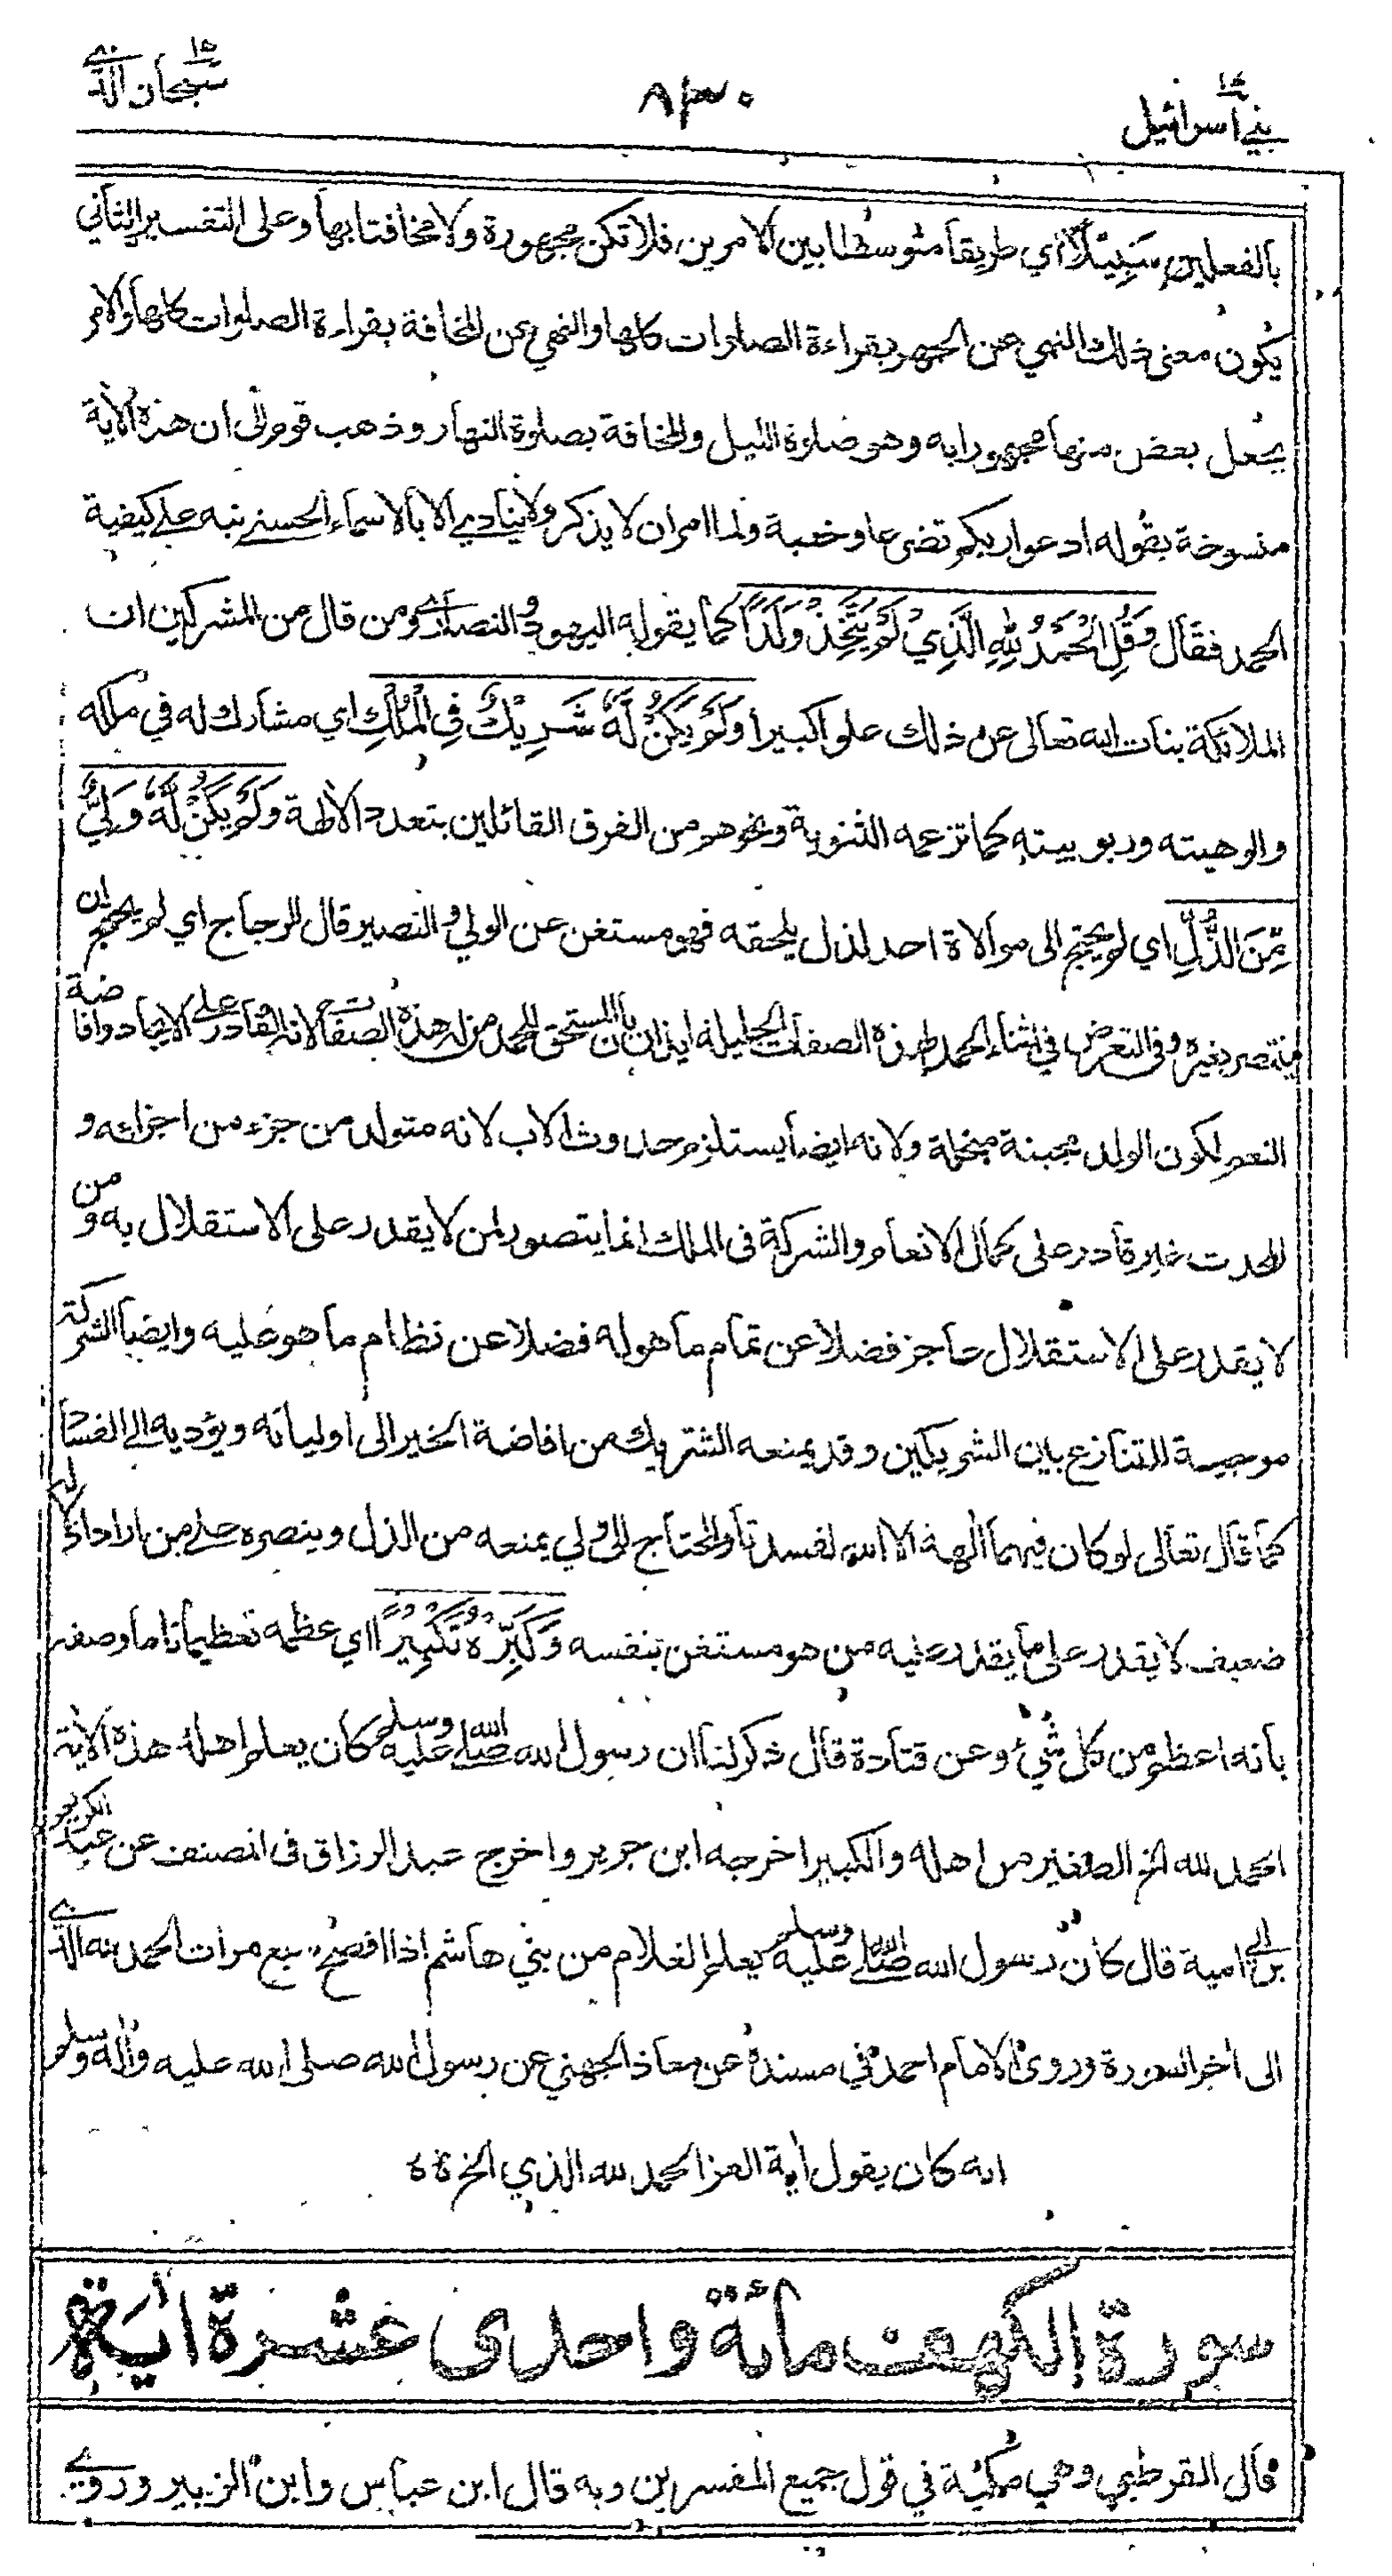 سبحان الذي ١٥
٨٣٠
بني اسرائيل ١٧
بالفعلين سَبِيْلًا اي طريقا متوسطا بين الامرين فلا تكن مجهورة ولا مخافتا بها وعلى التفسير الثاني
يكون معنى ذلك النهي عن الجهر بقراءة الصلوات كلها والنهي عن المخافة بقراءة الصلوات كلها والامر
بجعل بعض منها مجهورا به وهو صلوة الليل والمخافة بصلوة النهار وذهب قوم الى ان هذه الأية
منسوخة بقوله ادعوا ربكم تضرعا وخفية ولما امر ان لا يذكر ولا ينادي الا بالاسماء الحسنى نبه على كيفية
الحمد فقال وَقُلِ الْحَمْدُ لِلّٰهِ الَّذِيْ لَمْ يَتَّخِذْ وَلَدًا كما يقوله اليهود والنصارى ومن قال من المشركين ان
الملائكة بنات الله تعالى عن ذلك علوا كبيرا وَلَمْ يَكُنْ لَّهٗ شَرِيْكٌ فِي الْمُلْكِ اي مشارك له في ملكه
والوهيته وربوبيته كما تزعمه الثنوية ونحوهم من الفرق القائلين بتعدد الألهة وَلَمْ يَكُنْ لَّهٗ وَلِيٌّ
مِّنَ الذُّلِّ اي لم يحتج الى موالاة احد لذل يلحقه فهو مستغن عن الولي والنصير قال الزجاج اي لم يحتج ان
ينتصر بغيره وفي التعرض في اثناء الحمد لهذه الصفات الجليلة ايذان بان المستحق للحمد من له هذه الصفات لانه القادر على الايجاد وافاضة
النعم لكون الولد مجبنة مبخلة ولانه ايضا يستلزم حدوث الاب لانه متولد من جزء من اجزائه و
المحدث غير قادر على كمال الانعام والشركة في الملك انما يتصور لمن لا يقدر على الاستقلال به ومن
لا يقدر على الاستقلال عاجز فضلا عن تمام ما هو له فضلا عن نظام ما هو عليه وايضا الشركة
موجبة للتنازع بين الشريكين وقد يمنعه الشريك من افاضة الخير الى اوليائه ويؤديه الى الفساد
كما قال تعالى لو كان فيهما ألهة الا الله لفسدتا والمحتاج الى ولي يمنعه من الذل وينصره على من اراد اذلاله
ضعيف لا يقدر على ما يقدر عليه من هو مستغن بنفسه وَكَبِّرْهُ تَكْبِيْرًا اي عظمه تعظيما تاما وصفه
بانه اعظم من كل شيء وعن قتادة قال ذكر لنا ان رسول الله صلى الله عليه وسلم كان يعلم اهله هذه الأية
الحمد لله الخ الصغير من اهله والكبير اخرجه ابن جرير واخرج عبد الرزاق في المصنف عن عبد الكريم
بن ابي امية قال كان رسول الله صلى الله عليه وسلم يعلم الغلام من بني هاشم اذا افصح سبع مرات الحمد لله الذي
الى أخر السورة وروى الامام احمد في مسنده عن معاذ الجهني عن رسول الله صلى الله عليه وأله وسلم
انه كان يقول أية العز الحمد لله الذي الخ
سورة الكهف مائة واحدى عشرة اية
قال القرطبي وهي مكية في قول جميع المفسرين وبه قال ابن عباس وابن الزبير وروي